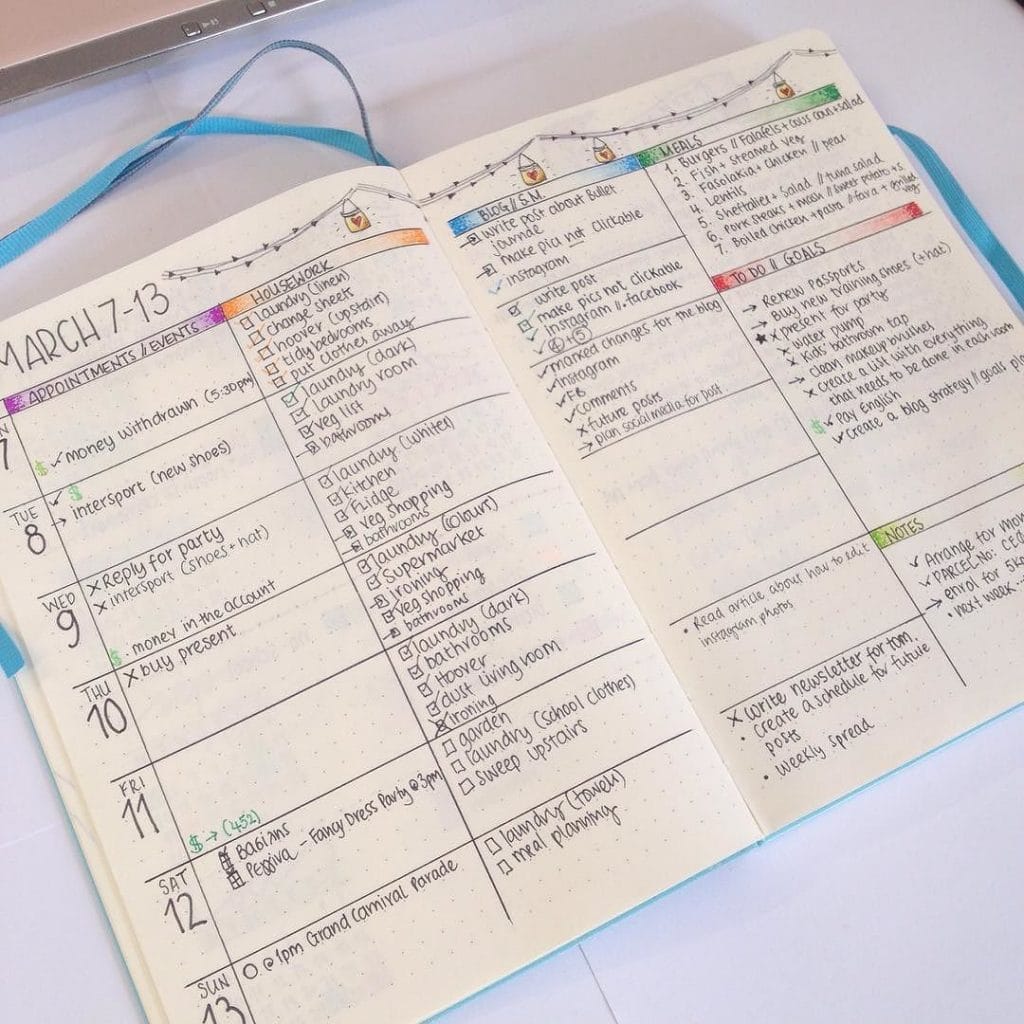 MARCH 7-13
APPOINTMENTS // EVENTS
7
$ ✓ money withdrawn (5:30pm)
✓ $
→ intersport (new shoes)
TUE
8
X Reply for party
X intersport (shoes + hat)
WED
9
$ • money in the account
X buy present
THU
10
FRI
11
$ → (452)
Βαβίλης
Fancy Dress Party @ 3pm
SAT
12
O @ 1pm Grand Carnival Parade
SUN
13
HOUSEWORK
laundry (linen)
change sheets
hoover (upstairs)
tidy bedrooms
put clothes away
laundry (dark)
laundry room
veg list
bathrooms
laundry (whites)
kitchen
fridge
veg shopping
bathrooms
laundry (colours)
supermarket
ironing
veg shopping
bathrooms
laundry (dark)
bathrooms
Hoover
dust living room
ironing
garden
laundry (school clothes)
sweep upstairs
laundry (towels)
meal planning
BLOG // S.M.
write post about Bullet
journals
make pics not clickable
✓ instagram
write post
make pics not clickable
✓ instagram // facebook
✓ ④ + ⑤
✓ marked changes for the blog
✓ Instagram
✓ FB
✓ comments
X future posts
→ plan social media for post
• Read article about how to edit
instagram photos
X write newsletter for tom.
• create a schedule for future
posts
• weekly spread
MEALS
1. Burgers // Falafels + cous cous + salad
2. Fish + steamed veg
3. Fasolakia + chicken // peas
4. Lentils
5. Sheftalies + salad // tuna salad
6. Pork steaks + mash // sweet potato + s.
veg
7. Boiled chicken + pasta // fava + grilled
veg
TO DO // GOALS
→ Renew passports
→ Buy new training shoes (+hat)
★ X present for party
X water pump
X kids bathroom tap
→ clean makeup brushes
X Create a list with everything
that needs to be done in each room
$ ✓ Pay English
✓ Create a blog strategy // goals
NOTES
✓ Arrange for
✓ PARCEL No:
→ enrol for
• next week...